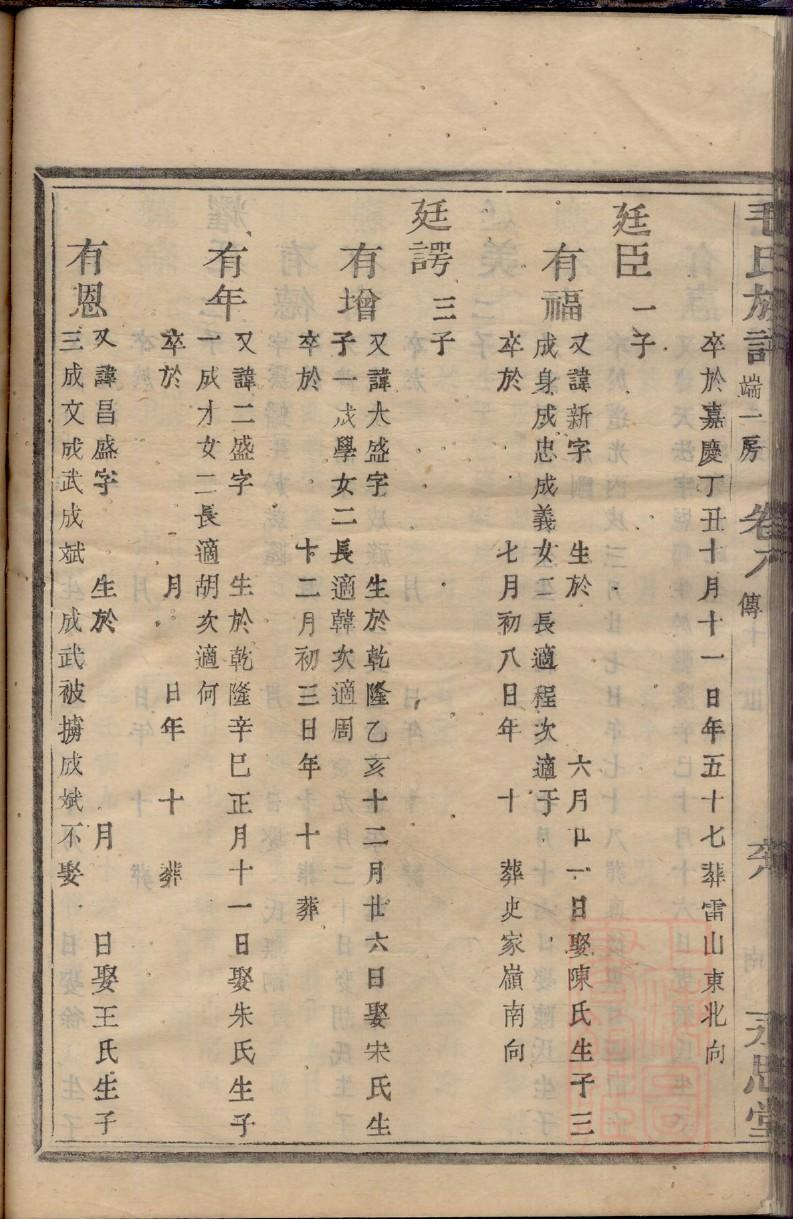 毛氏族譜 端一房 卷六 傳 永思堂
卒於嘉慶丁丑十月十一日年五十七葬雷山東北向
廷臣 一子
有福 又諱新字 生於 六月廿一日娶陳氏生子三
成身成忠成義女二長適程次適于
卒於 七月初八日年 十 葬史家嶺南向
廷諤 三子
有增 又諱大盛字 生於乾隆乙亥十二月廿六日娶宋氏生
子一成學女二長適韓次適周
卒於 十二月初三日年 十 葬
有年 又諱二盛字 生於乾隆辛巳正月十一日娶朱氏生子
一成才女二長適胡次適何
卒於 月 日年 十 葬
有恩 又諱昌盛字 生於 月 日娶王氏生子
三成文成武成斌 成武被擄成斌不娶